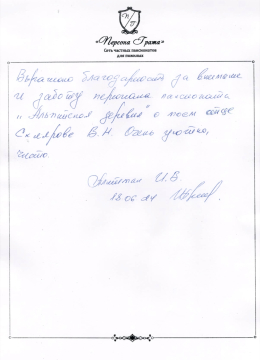 "Персона Грата"
Сеть частных пансионатов
для пожилых
Выражаю благодарность за внимание
и заботу персоналу пансионата
"Альпийская деревня" о моем отце
Склярове В.Н. Очень уютно,
чисто.
И.В
18.06.24